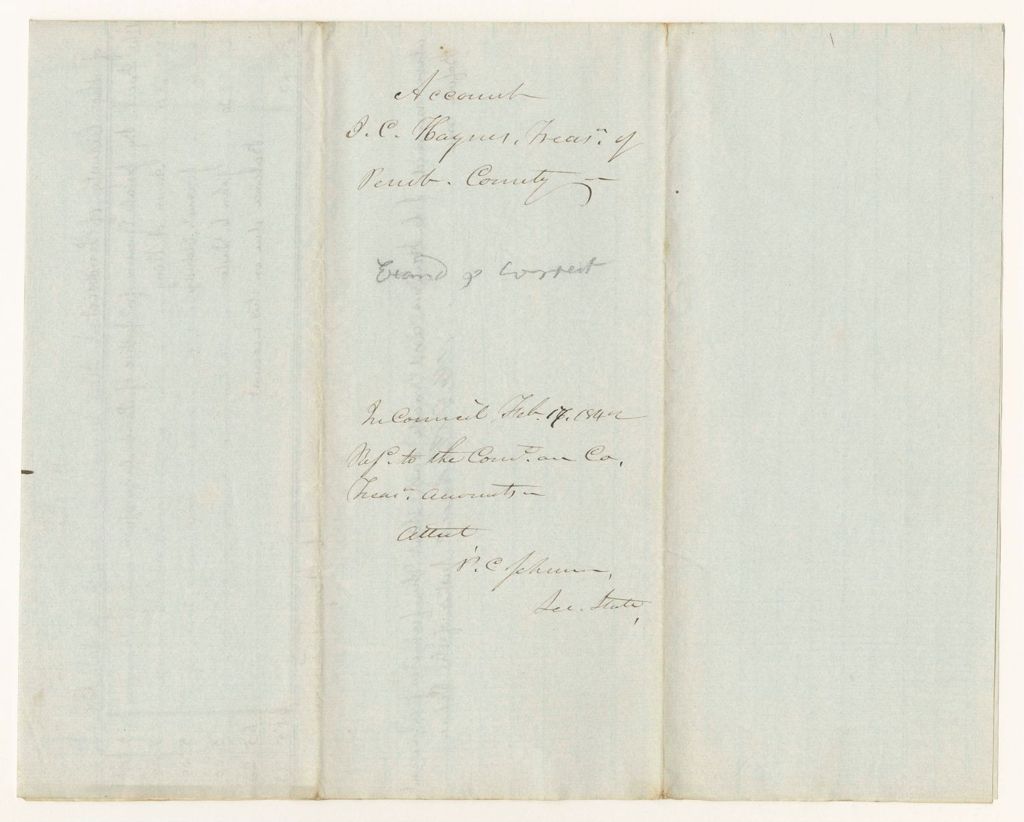 Account
J. C. Haynes, Treasr. of
Penob. County —
Exam'd & Correct
In Council Feb. 17. 1842
Refd. to the Comt. on Co.
Treasr. accounts —
Attest
P. C. Johnson,
Sec. State,